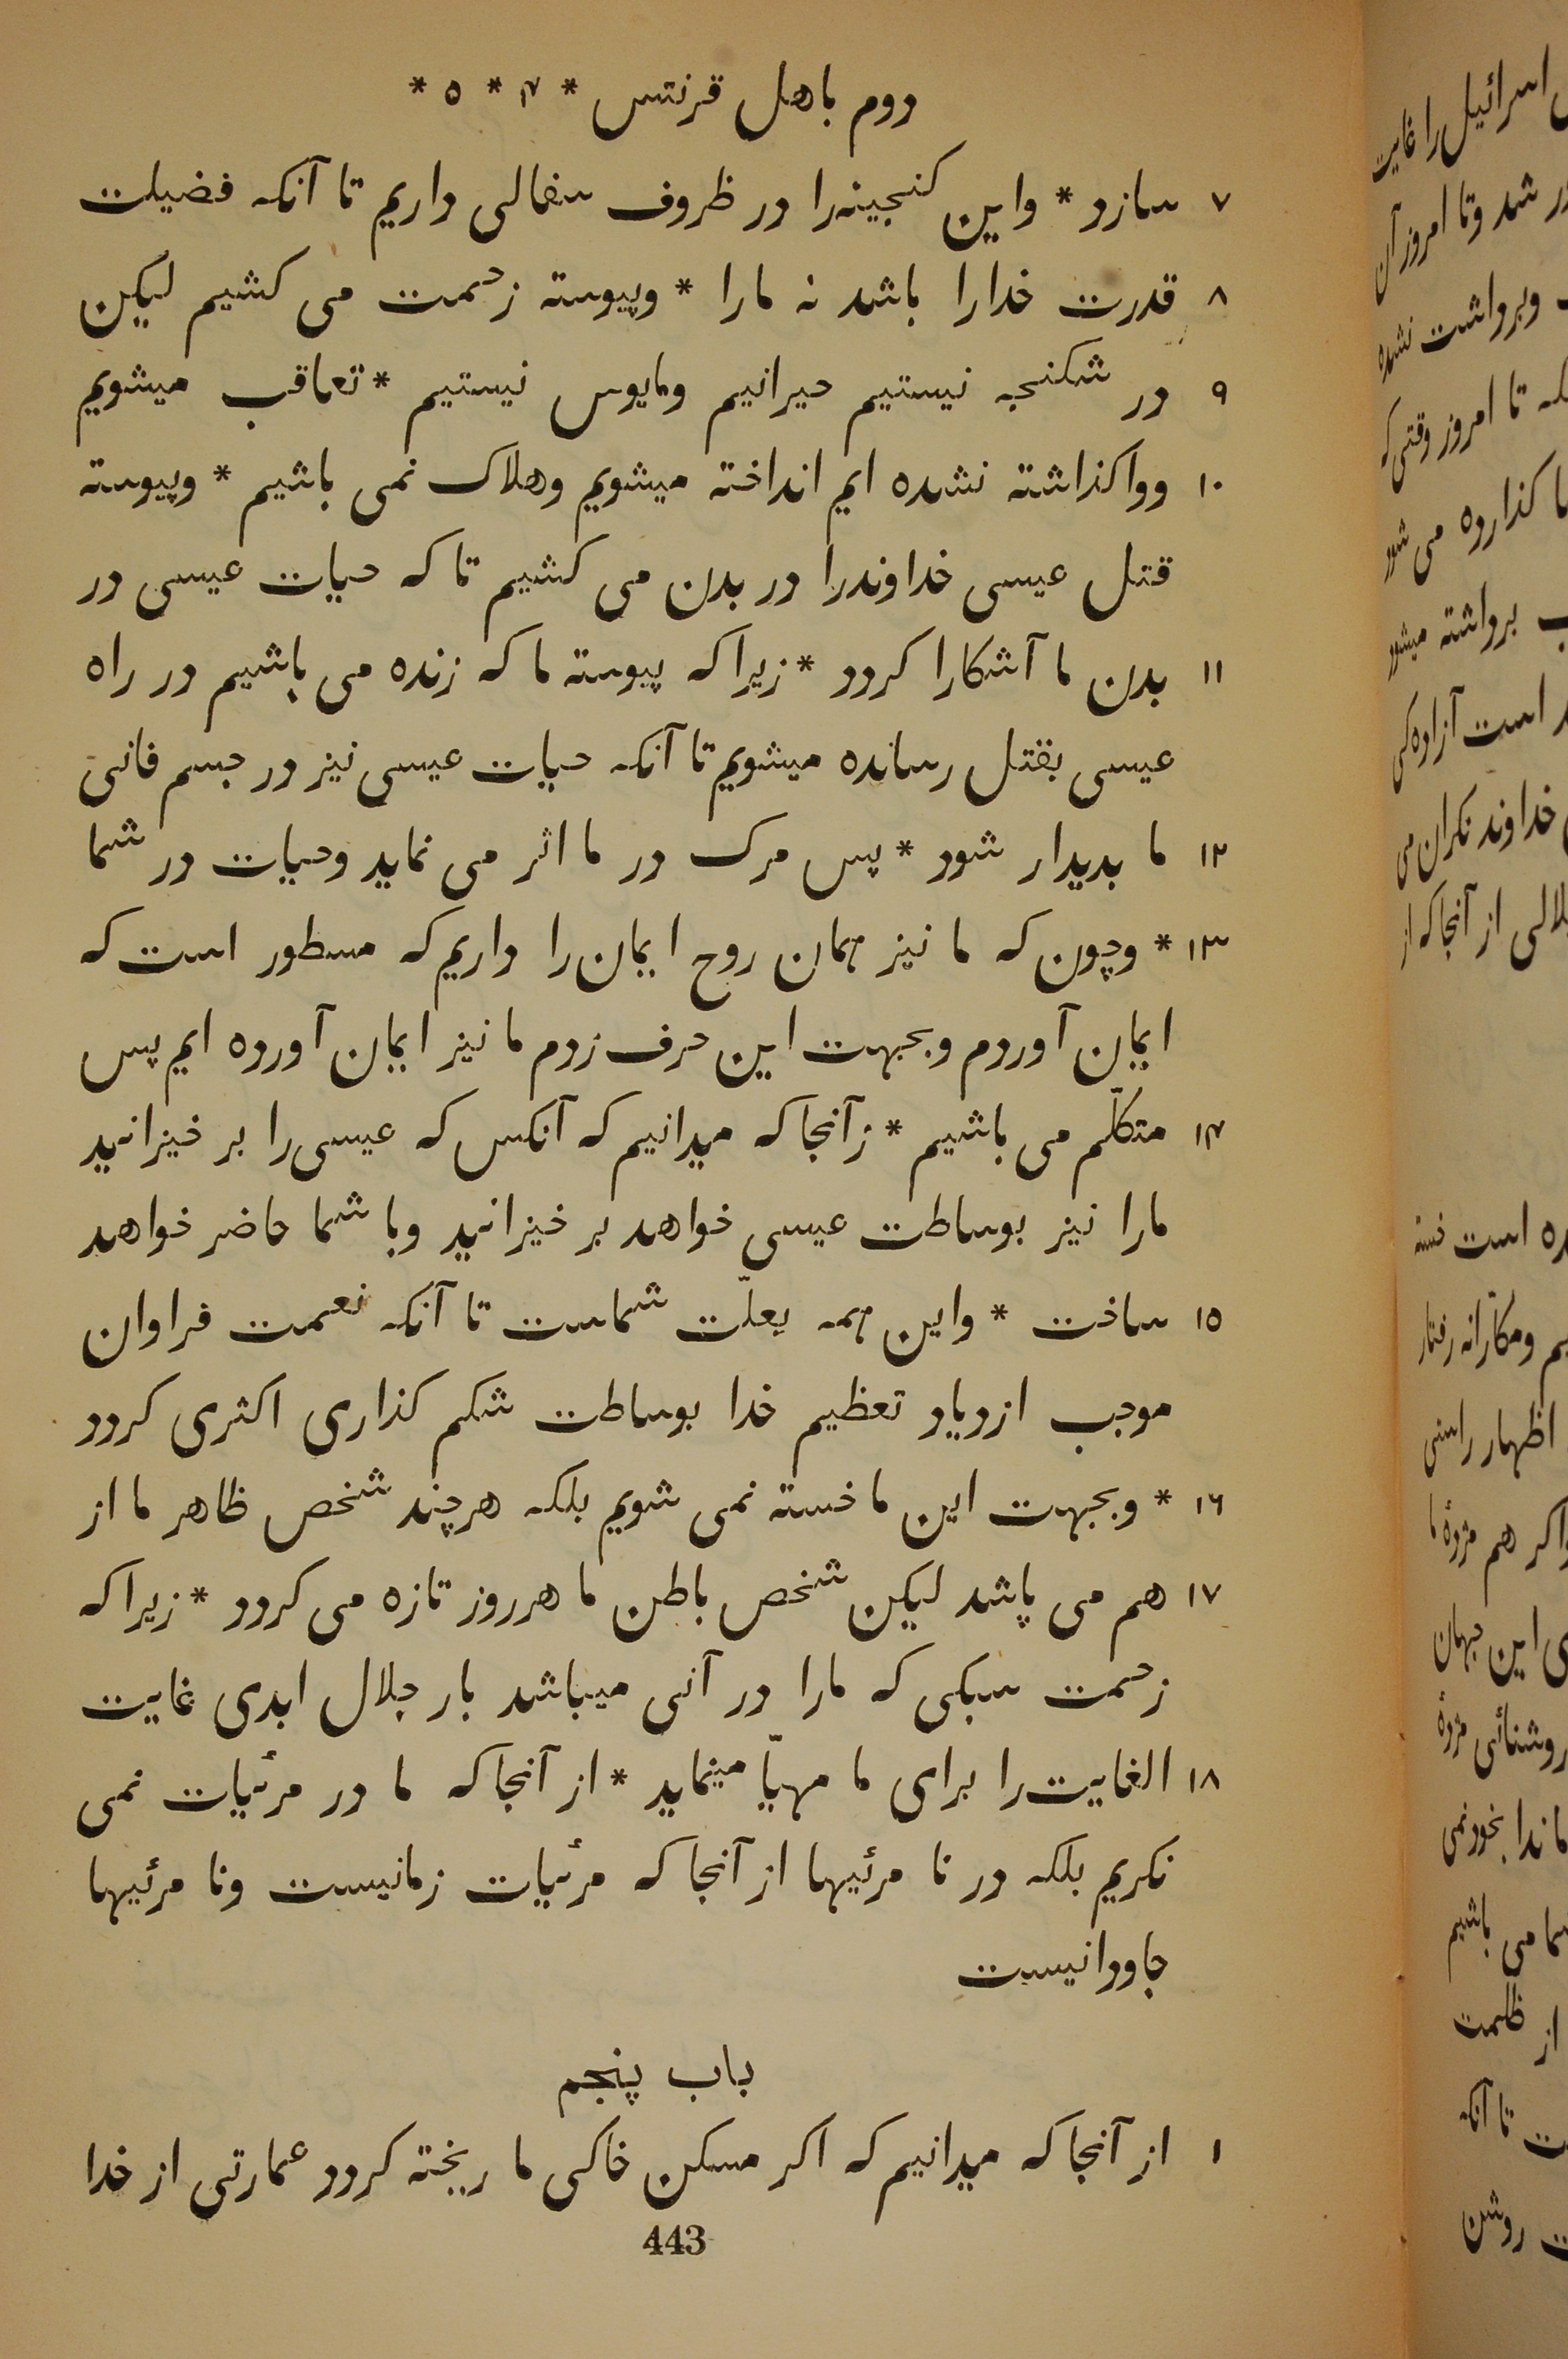 دوم باهل قرنتس * ۴ * ۵ *
۷ سازد * واین کنجینه‌را در ظروف سفالی داریم تا آنکه فضیلت
۸ قدرت خدارا باشد نه مارا * وپیوسته زحمت می کشیم لیکن
۹ در شکنجه نیستیم حیرانیم ومایوس نیستیم * تعاقب میشویم
۱۰ وواکذاشته نشده ایم انداخته میشویم وهلاک نمی باشیم * وپیوسته
قتل عیسی خداوندرا در بدن می کشیم تا که حیات عیسی در
۱۱ بدن ما آشکارا کردد * زیرا که پیوسته ما که زنده می باشیم در راه
عیسی بقتل رسانده میشویم تا آنکه حیات عیسی نیز در جسم فانی
۱۲ ما بدیدار شود * پس مرک در ما اثر می نماید وحیات در شما
۱۳ * وچون که ما نیز همان روح ایمان را داریم که مسطور است که
ایمان آوردم وبجهت این حرف زدم ما نیز ایمان آورده ایم پس
۱۴ متکلّم می باشیم * زآنجا که میدانیم که آنکس که عیسی را بر خیزانید
مارا نیز بوساطت عیسی خواهد بر خیزانید وبا شما حاضر خواهد
۱۵ ساخت * واین همه بعلّت شماست تا آنکه نعمت فراوان
موجب ازدیاد تعظیم خدا بوساطت شکم کذاری اکثری کردد
۱۶ * وبجهت این ما خسته نمی شویم بلکه هرچند شخص ظاهر ما از
۱۷ هم می پاشد لیکن شخص باطن ما هرروز تازه می کردد * زیرا که
زحمت سبکی که مارا در آنی میباشد بار جلال ابدی غایت
۱۸ الغایت را برای ما مهیّا مینماید * از آنجا که ما در مرئیات نمی
نکریم بلکه در نا مرئیها از آنجا که مرئیات زمانیست ونا مرئیها
جاودانیست
باب پنجم
۱ از آنجا که میدانیم که اکر مسکن خاکی ما ریخته کردد عمارتی از خدا
443